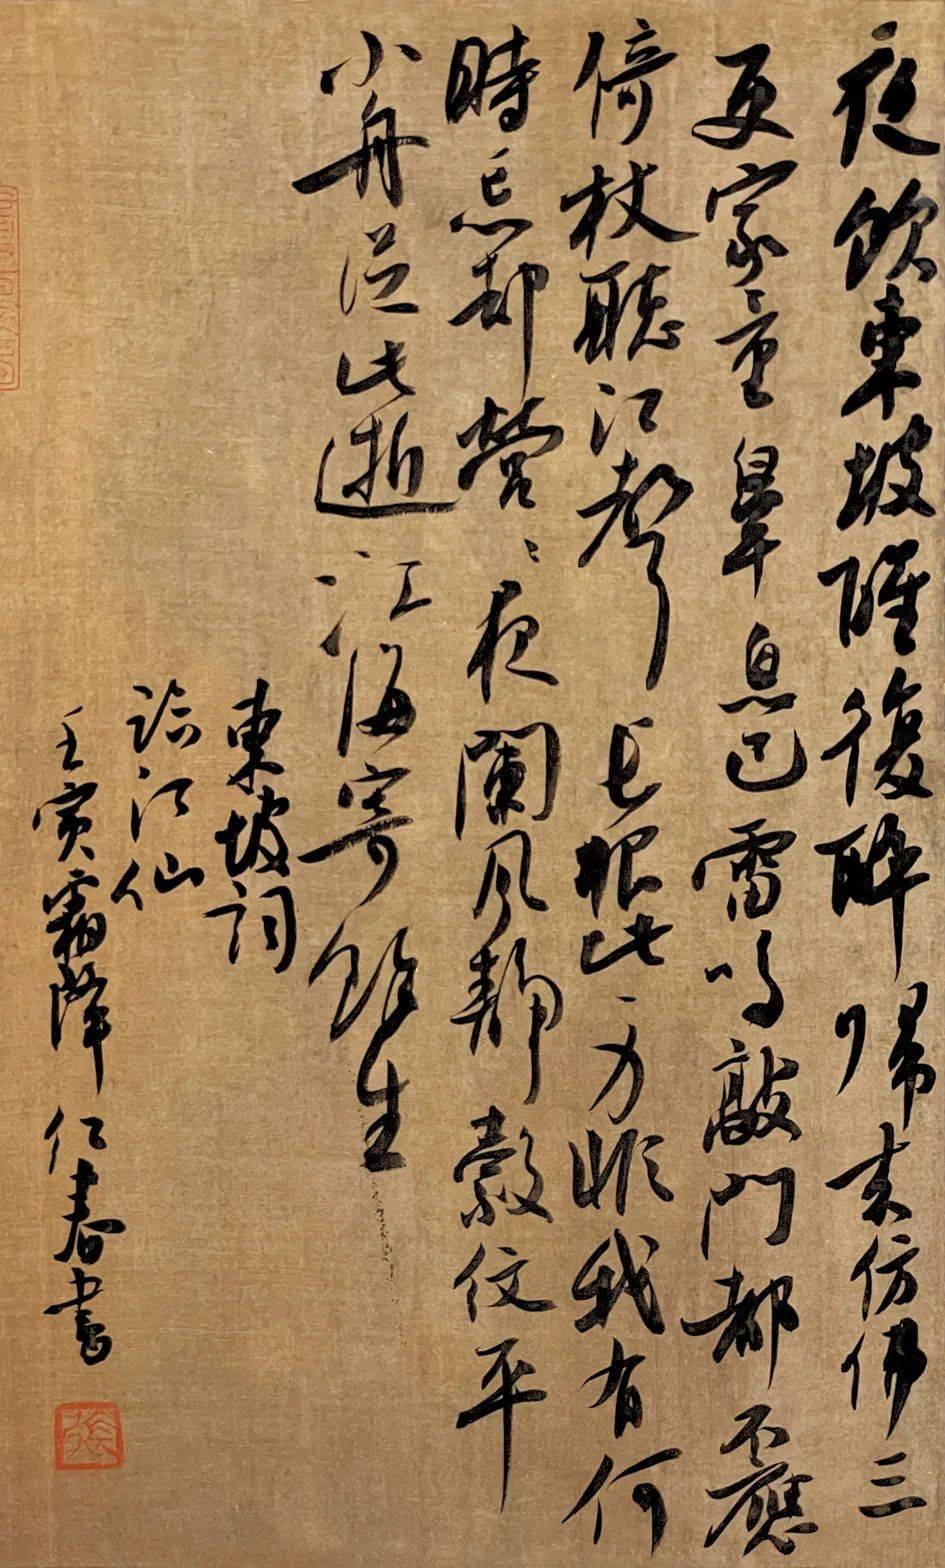 夜飲東坡醒復醉歸来仿佛三
更家童鼻息已雷鳴敲門都不應
倚杖聽江聲長恨此身非我有何
時忘却營〻夜闌風靜縠紋平
小舟從此逝江海寄餘生
東坡詞
臨江仙
壬寅霜降仁春書